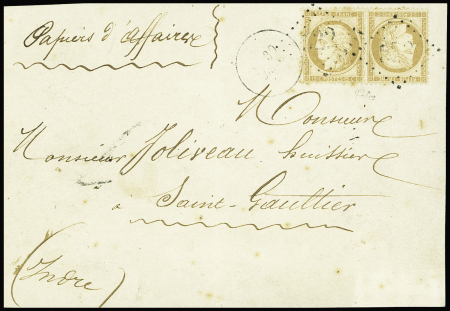 Papiers d'affaires
Monsieur
Monsieur Joliveau, huissier
à
Saint-Gaultier
(Indre)